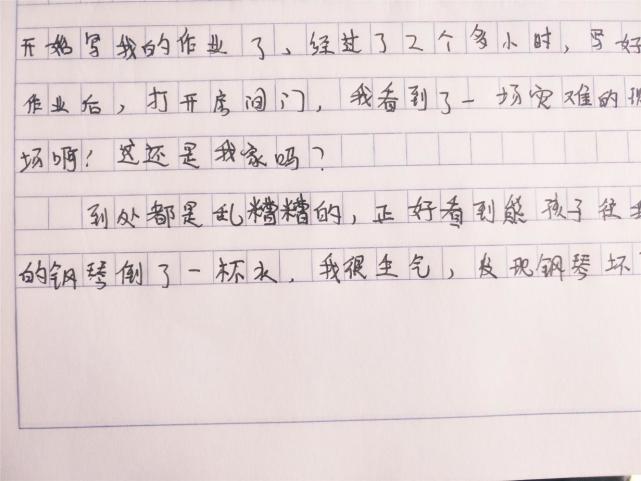 开始写我的作业了，经过了2个多小时，写好
作业后，打开房间门，我看到了一场灾难的现
场啊！这还是我家吗？
到处都是乱糟糟的，正好看到熊孩子往我
的钢琴倒了一杯水，我很生气，发现钢琴坏